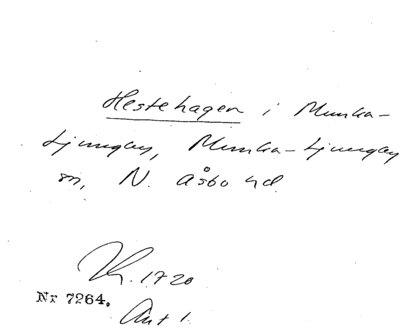 Hestehagen i Munka-
Ljungby, Munka-Ljungby
sn, N. Åsbo hd.
Kh. 1720
Nr 7264.
Ant 1.